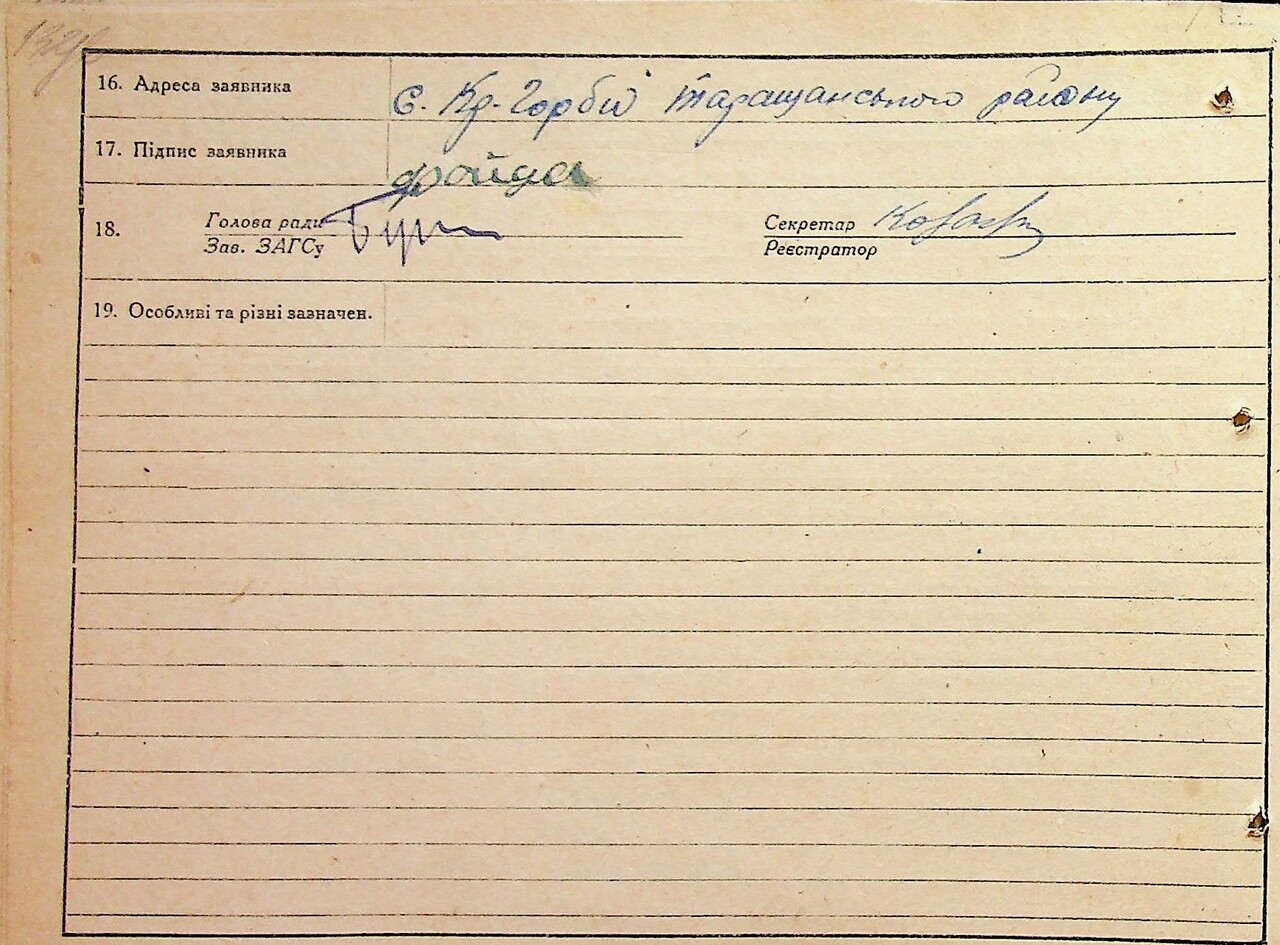 16. Адреса заявника с. Кр-Горби Таращанського району
17. Підпис заявника Фойда
18. Голова ради Секретар
Зав. ЗАГСу Реєстратор
19. Особливі та різні зазначен.